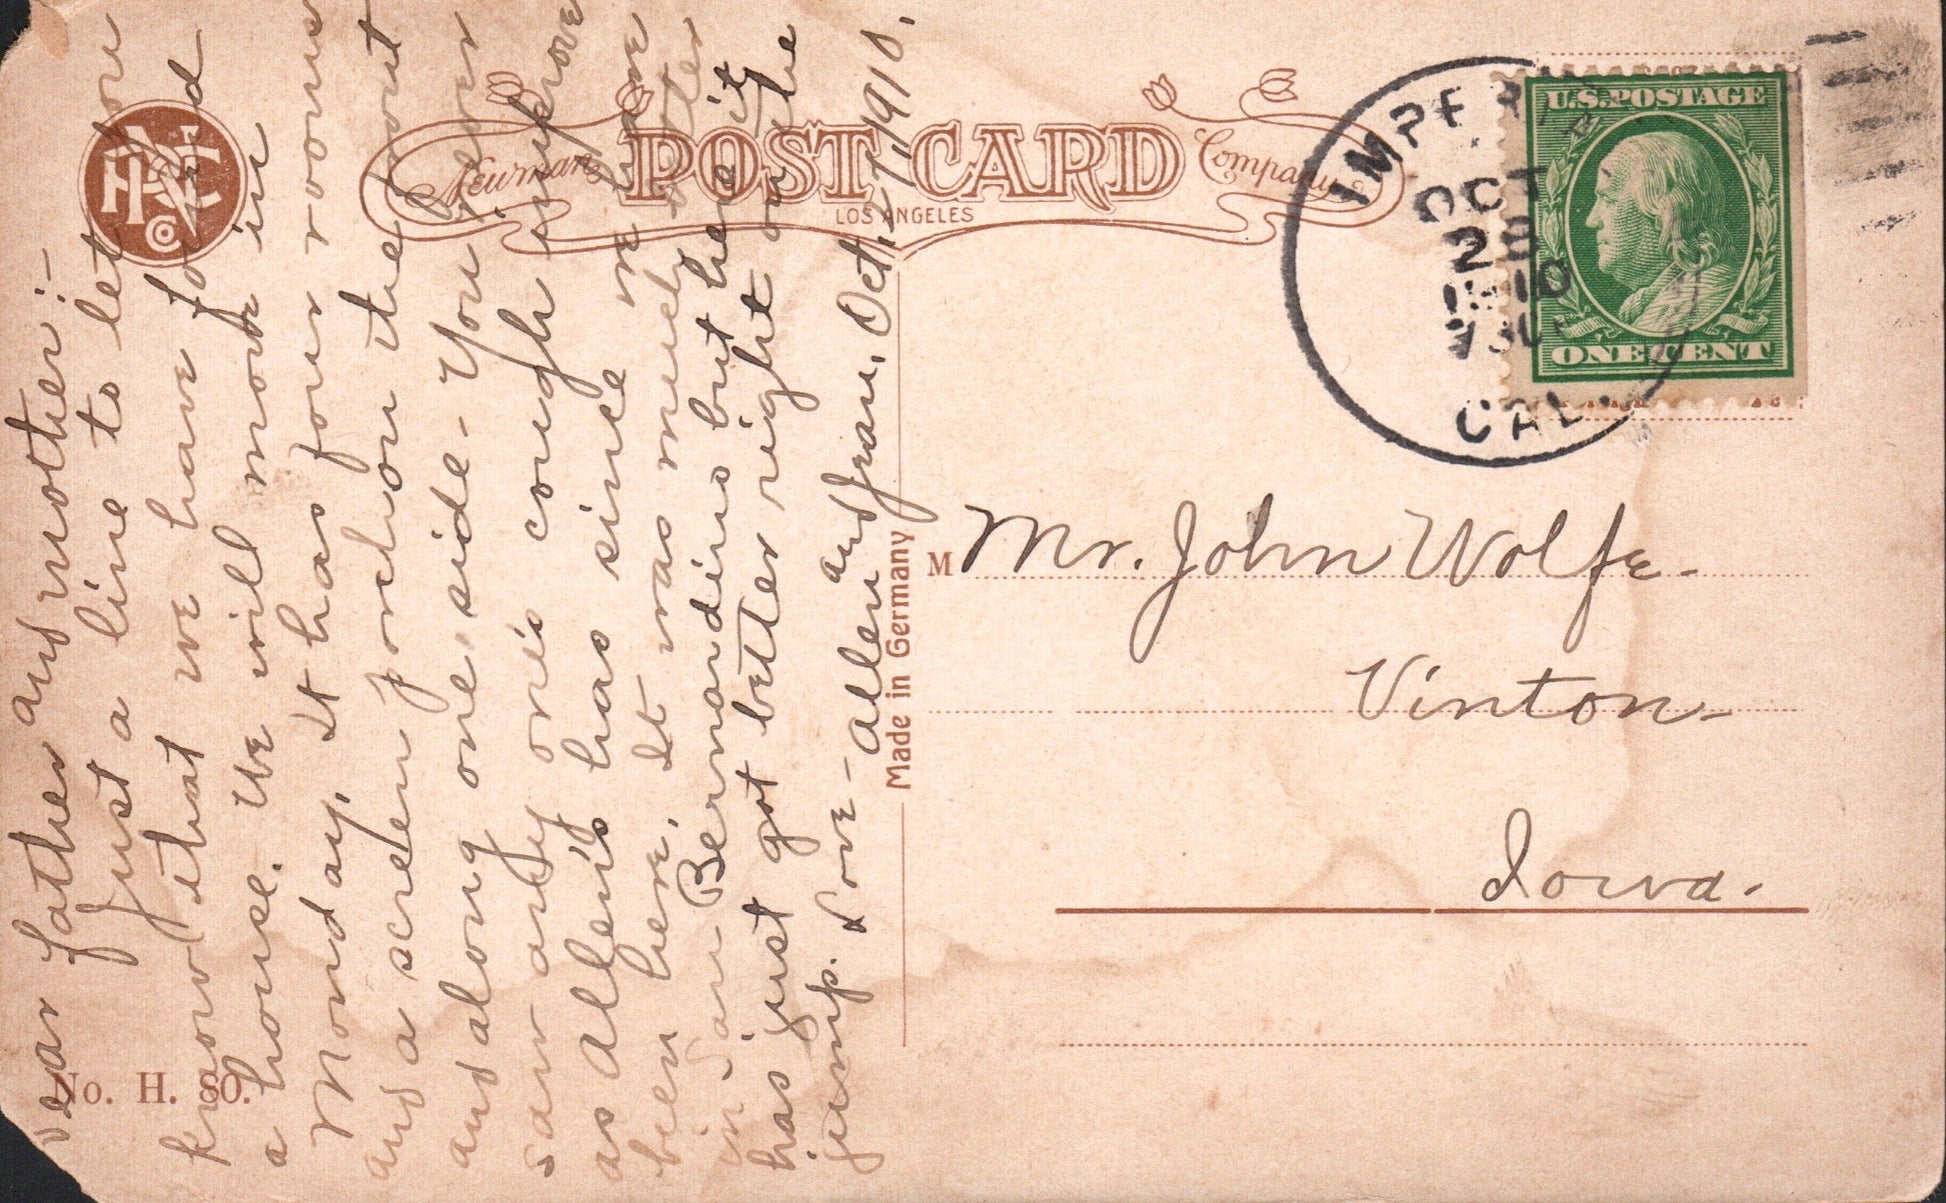 Newman POST CARD Company
LOS ANGELES
Made in Germany
No. H. 80.
U.S. POSTAGE
ONE CENT
IMPERIAL
OCT
28
1910
CAL.
M Mr. John Wolfe.
Vinton
Iowa.
Dear father and mother:-
Just a line to let you
know that we have found
a house. We will move in
Monday. It has four rooms
and a screen porch on the front
and along one side - You never
saw any one's cough improve
as Allen's has since we have
been here. It was much better
in San Bernardino but here it
has just got better right on the
jump. Love - Allen and Jean. Oct. 27, 1910.